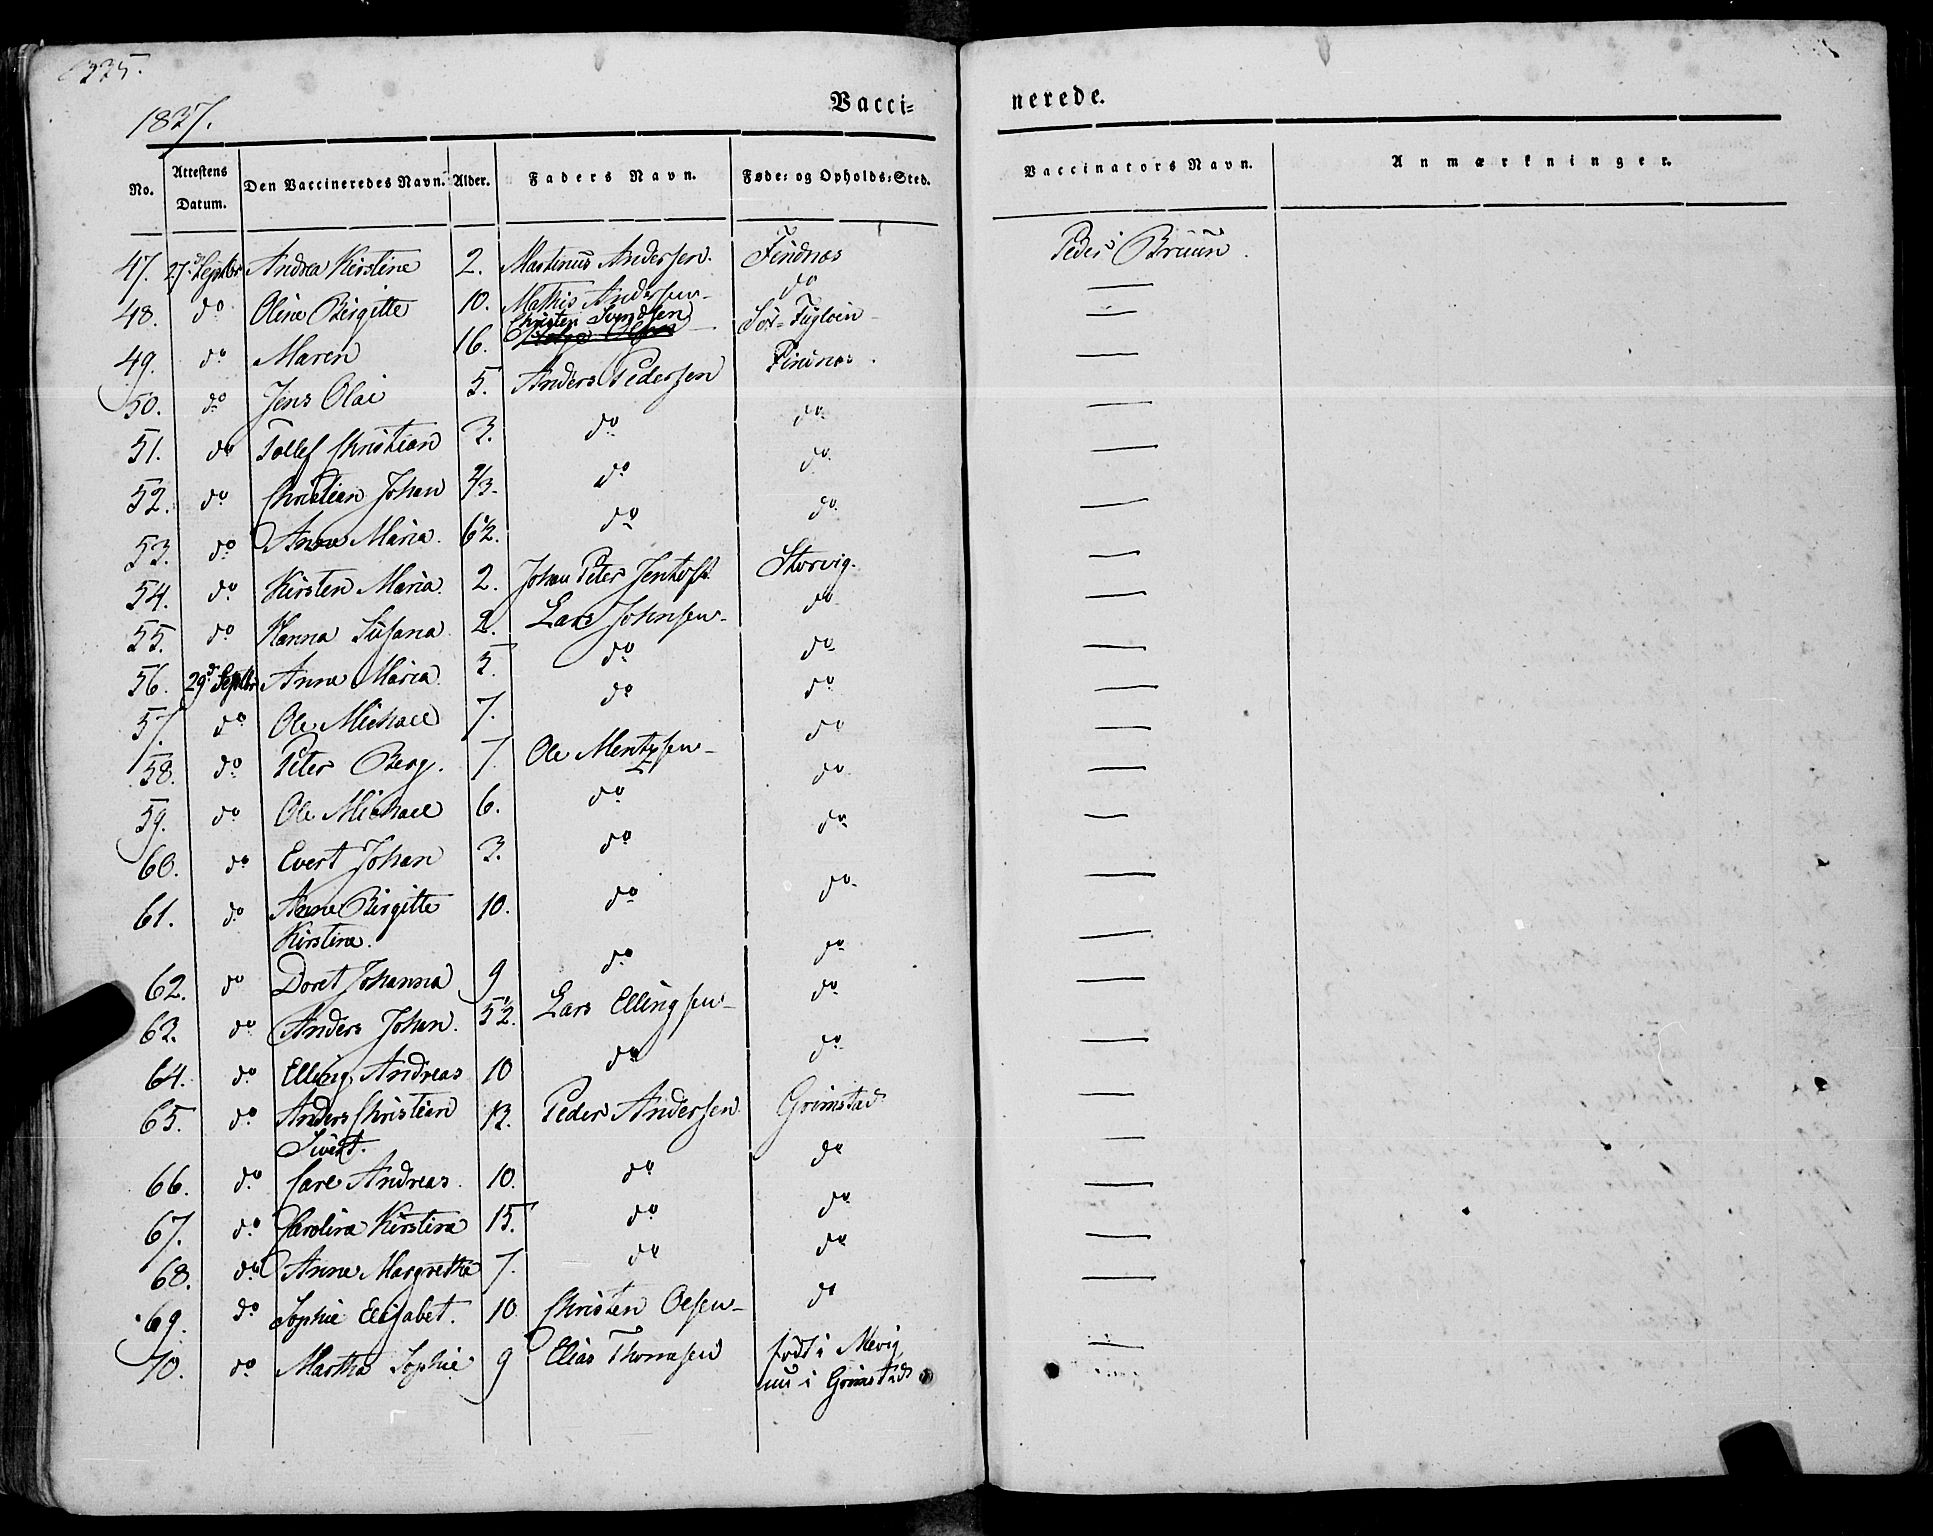 335.
1837.
Vacci=
nerede.
No. Attestens Datum. Den Vaccineredes Navn. Alder. Faders Navn. Føde= og Opholds=Sted. Vaccinators Navn. Anmærkninger.
47. 27d Septbr Andrea Kirstine 2. Martinus Andersen. Findnæs Peder Bruun.
48. do Oline Birgitte 10. Mathis Andersen do —
49. do Maren 16. Christen Svendsen Sør=Fugløen —
50. do Jens Olai 5. Anders Pedersen Findnæs. —
51. do Tollef Christian 3. do do —
52. do Christian Johan 2/3. do do —
53. do Anne Maria. 6½. do do —
54. do Kirsten Maria. 2. Johan Peter Jentoft Storvig. —
55. do Hanna Susana 2. Lars Johnsen do —
56. 29d Septbr Anne Maria 5 do do —
57. do Ole Michael 7. do do —
58. do Peter Berg. 7. Ole Mentzsen do —
59. do Ole Michael 6. do do —
60. do Evert Johan 3. do do —
61. do Anne Birgitte 10. do do —
Kirstine.
62. do Doret Johanna 9 do do —
63. do Anders Johan. 5½. Lars Ellingsen do —
64. do Elling Andreas 10 do do —
65. do Anders Christian 12. Peder Andersen Grimstad —
Sivert.
66. do Carl Andreas. 10. do do —
67. do Carolina Kirstina 15. do do —
68. do Anne Margretha 7. do do —
69. do Sophie Elisabet. 10. Christen Olsen do —
70. do Martha Sophie 9 Elias Thomasen født i Mevig —
nu i Grimstad